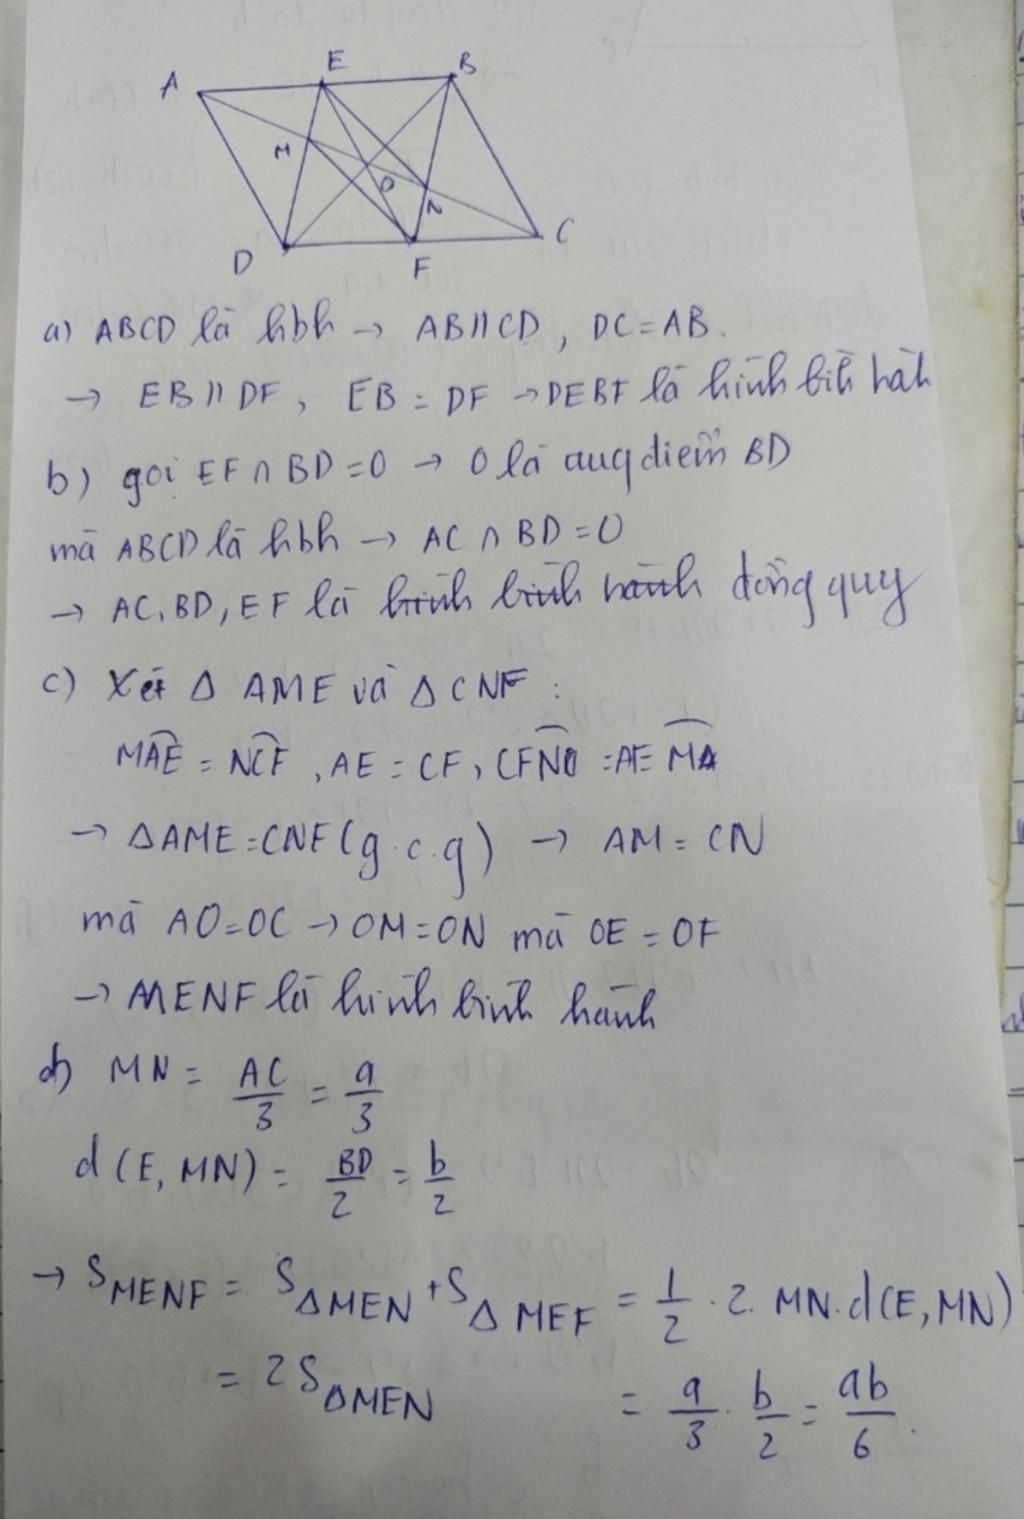 A E B
M O N
D F C
a) ABCD là hbh → AB // CD , DC = AB.
→ EB // DF , EB = DF → DEBF là hình bình hành
b) gọi EF ∩ BD = O → O là trung điểm BD
mà ABCD là hbh → AC ∩ BD = O
→ AC, BD, EF là hình bình hành đồng quy
c) Xét Δ AME và Δ CNF :
MAE = NCF , AE = CF ,
→ ΔAME = CNF (g.c.g) → AM = CN
mà AO = OC → OM = ON mà OE = OF
→ MENF là hình bình hành
d) MN = AC/3 = a/3
d (E, MN) = BD/2 = b/2
→ S MENF = S ΔMEN + S Δ MEF = 1/2 . 2. MN. d(E, MN)
= 2 S ΔMEN = a/3 . b/2 = ab/6 .